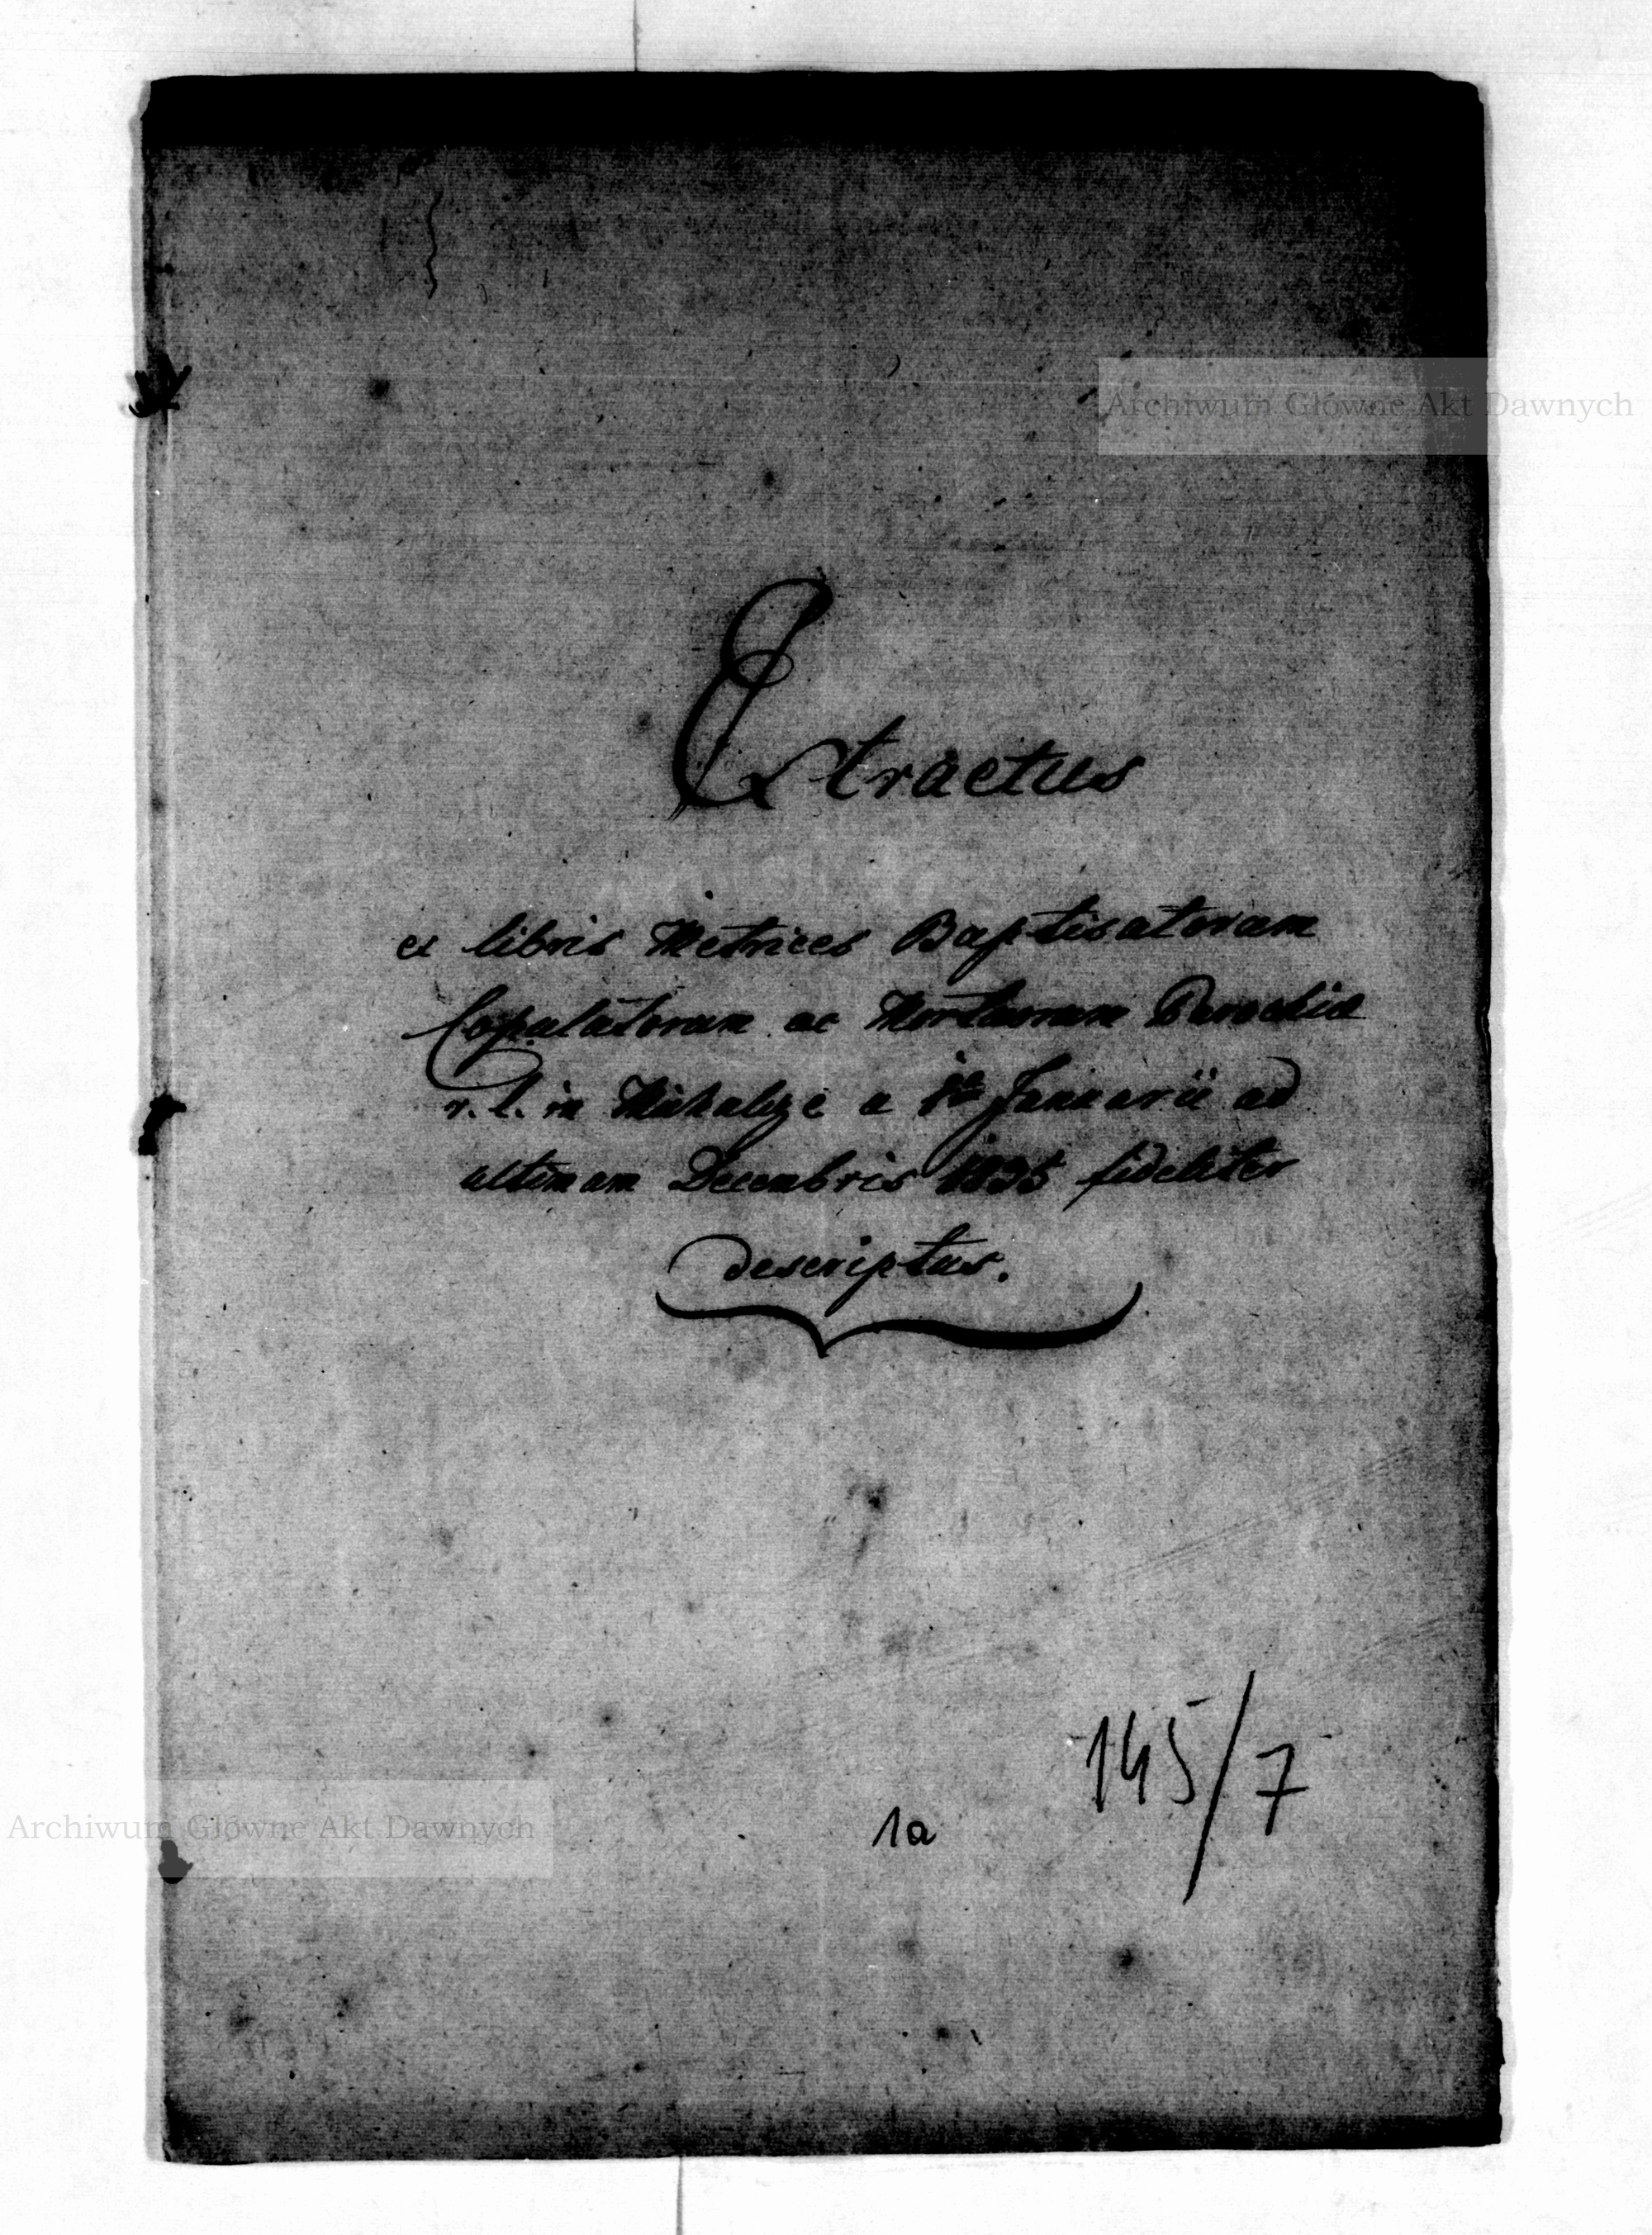 Archiwum Główne Akt Dawnych
Extractus
ex libris Metrices Baptisatorum
Copulatorum ac Mortuorum Parochiæ
r. l. in Michalcze a 1a Januarii ad
ultimam Decembris 1895 fideliter
descriptus.
145/7
1a
Archiwum Główne Akt Dawnych